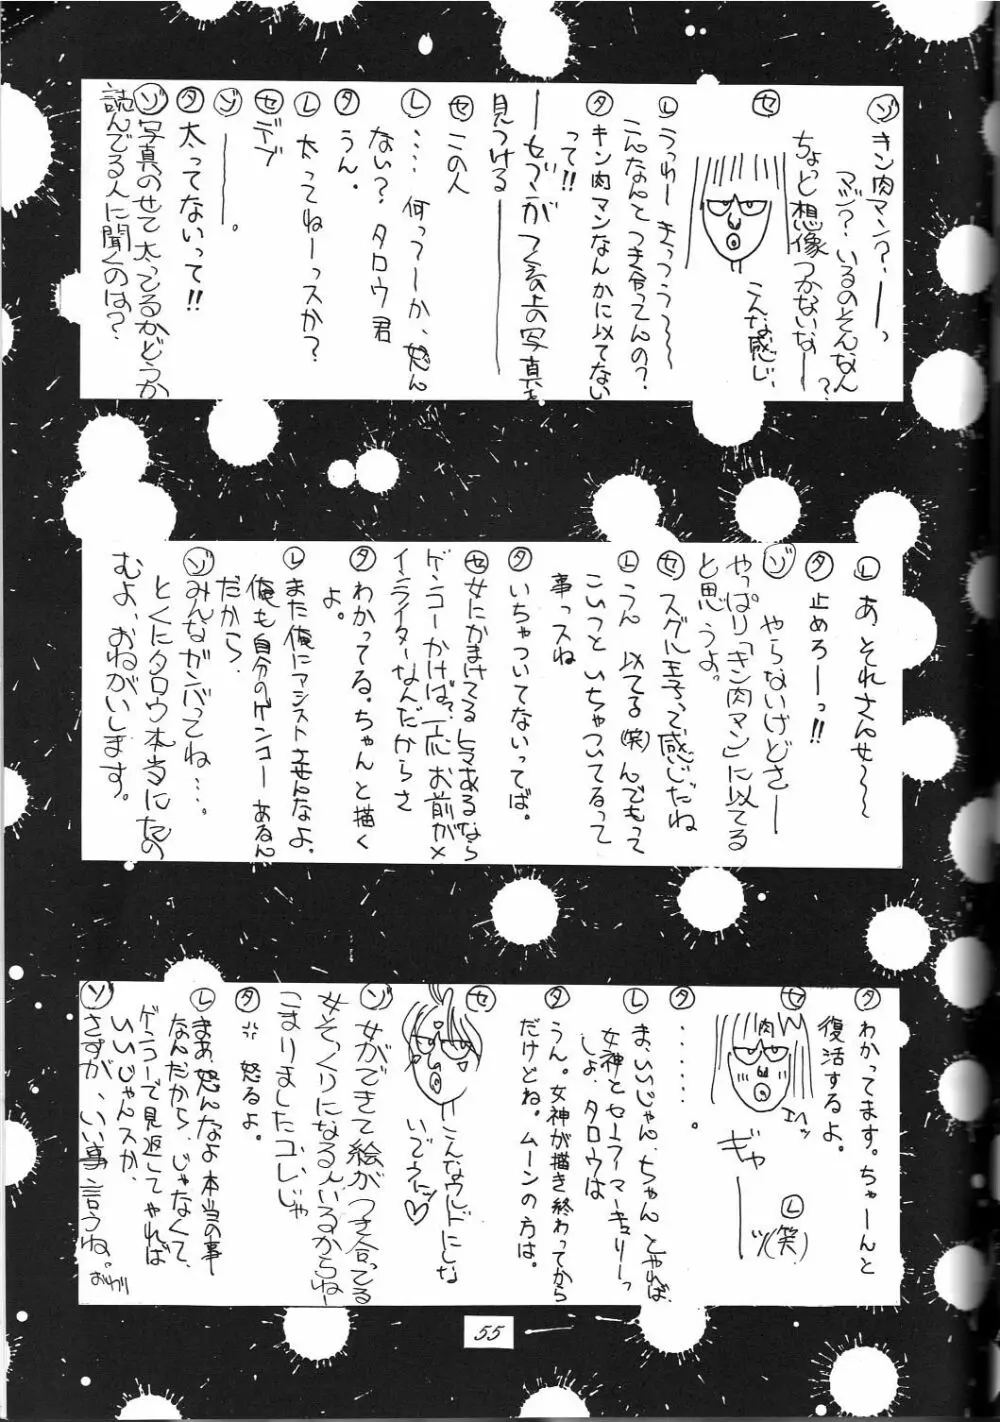 ゾ キン肉マン?ーーっ
マジ?いるのそんなん
ちょっと想像つかないなー?
セ
こんな感じ、
レ うっわーきっつうー〜〜
こんなんとつき合ってんの?
タ キン肉マンなんかに似てない
って!!
見つける——
セ この人
レ ‥‥何ってーか、怒ん
ない?タロウ君
タ うん。
レ 太ってねーっスか?
セ デブ
ゾ ———。
タ 太ってないって!!
ゾ 写真のせて太ってるかどうか
読んでる人に聞くのは?
レ あ それさんせ〜〜〜
タ 止めろーっ!!
ゾ やらないけどさー
やっぱり「キン肉マン」に似てる
と思うよ。
セ スグル王子って感じだね
レ うん 似てる(笑)んでもって
こいつといちゃついてるって
事っスね
タ いちゃついてないってば。
セ 女にかまけてるヒマあるなら
ゲンコーかけば?一応お前がメ
インライターなんだからさ
タ わかってる。ちゃんと描く
よ。
レ また俺にアシストさせんなよ。
俺も自分のゲンコーあるん
だから。
ゾ みんなガンバってね‥‥。
とくにタロウ本当にたの
むよ、おねがいします。
タ わかってます。ちゃーんと
復活するよ。
セ
肉
エハッ
ギャーーッ
レ (笑)
タ ‥‥‥‥。
レ ま、いいじゃん、ちゃんとやれば
女神とセーラーマーキュリーっ
しょ、タロウは
タ うん。女神が描き終わってから
だけどね。ムーンの方は。
セ
こんなウルドにしな
いでえにッ♡
ゾ 女ができて絵がつき合ってる
女そっくりになる人いるからねー
こまりましたコレじゃ
タ 怒るよ。
レ まあ、怒んなよ本当の事
なんだから、じゃなくて、
ゲンコーで見返してやれば
いいじゃんスか、
ゾ さすが、いい事言うね。
おわり
55